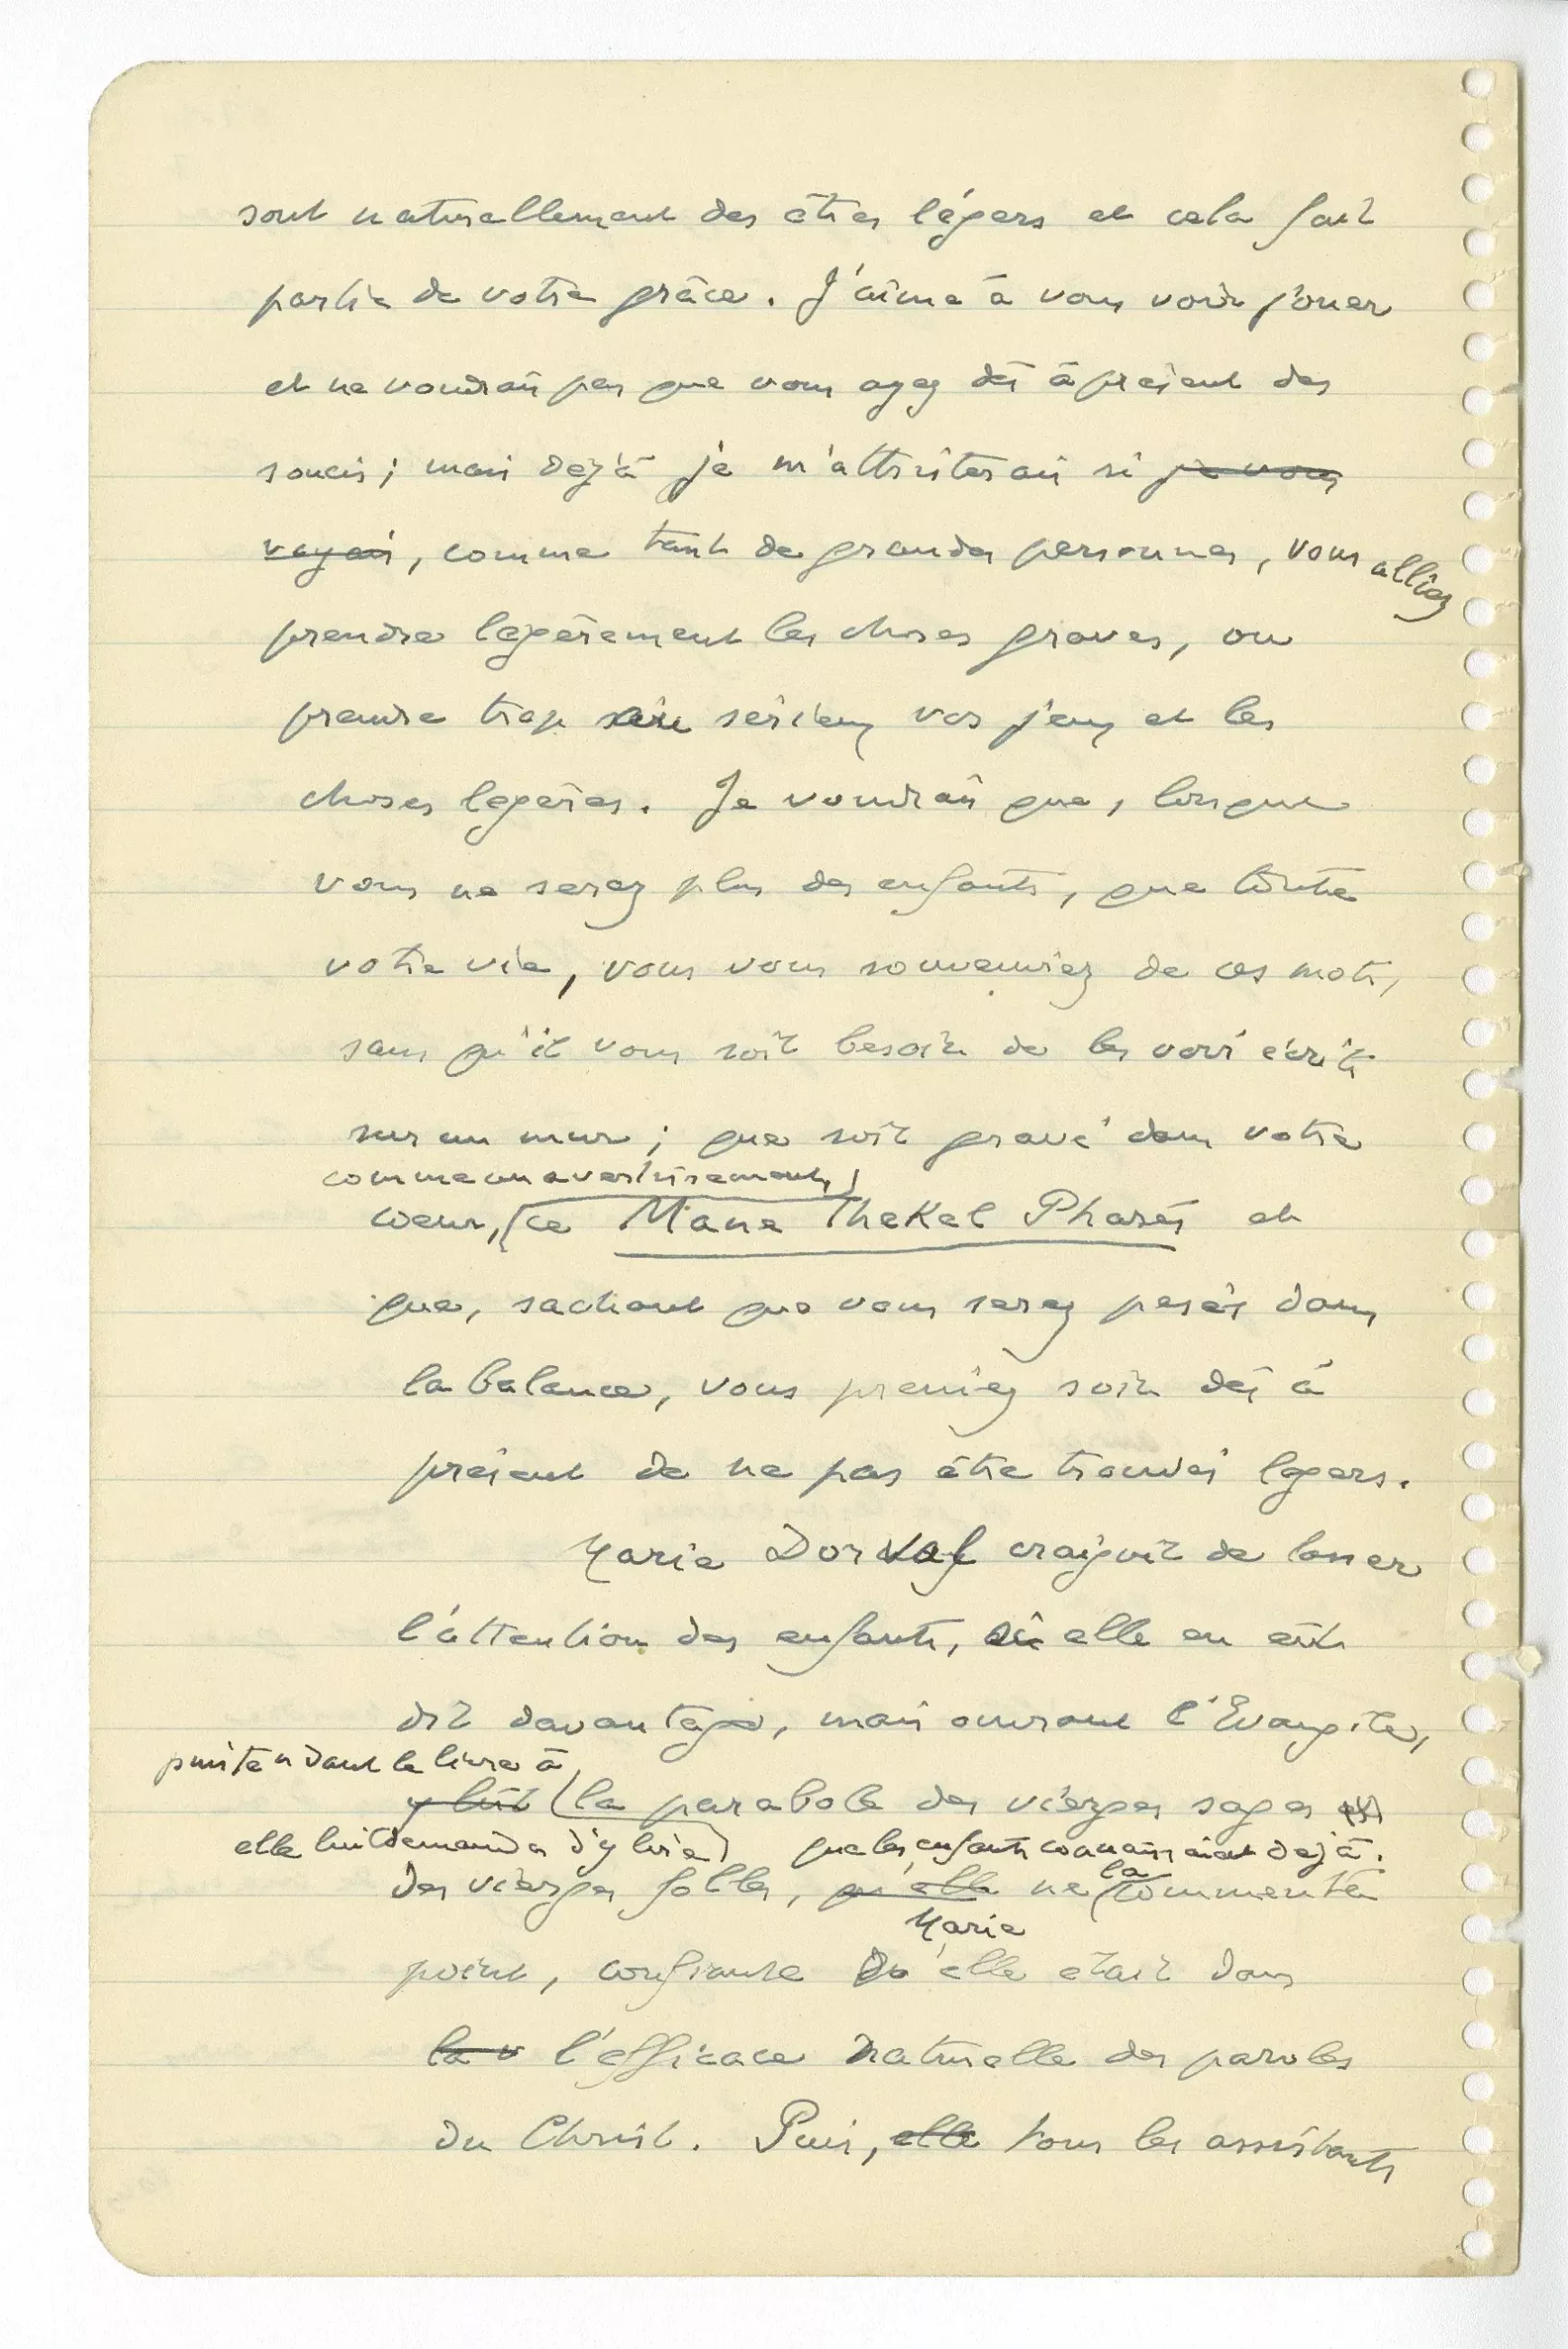 sont naturellement des êtres légers et cela fait
partie de votre grâce. J'aime à vous voir jouer
et ne voudrais pas que vous ayez dès à présent des
soucis ; mais déjà je m'attristerais si je vous
voyais, comme tant de grandes personnes, vous alliez
prendre légèrement les choses graves, ou
prendre trop sérieux vos jeux et les
choses légères. Je voudrais que, lorsque
vous ne serez plus des enfants, que toute
votre vie, vous vous souveniez de ces mots,
sans qu'il vous soit besoin de les voir écrits
sur un mur ; que soit gravé dans votre
comme un avertissement,
coeur, ce Mane Thekel Pharès et
que, sachant que vous serez pesés dans
la balance, vous preniez soin dès à
présent de ne pas être trouvés legers.
Marie Dorval craignit de lasser
l'attention des enfants, si elle en eût
dit davantage, mais ouvrant l'Evangile,
puis tendant le livre à
y lût la parabole des vierges sages et
elle lui demanda d'y lire que les enfants connaissaient dejà.
des vierges folles, qu'elle ne la commenta
Marie
point, confiante qu'elle etait dans
la v l'efficace naturelle des paroles
du Christ. Puis, elle tous les assistants